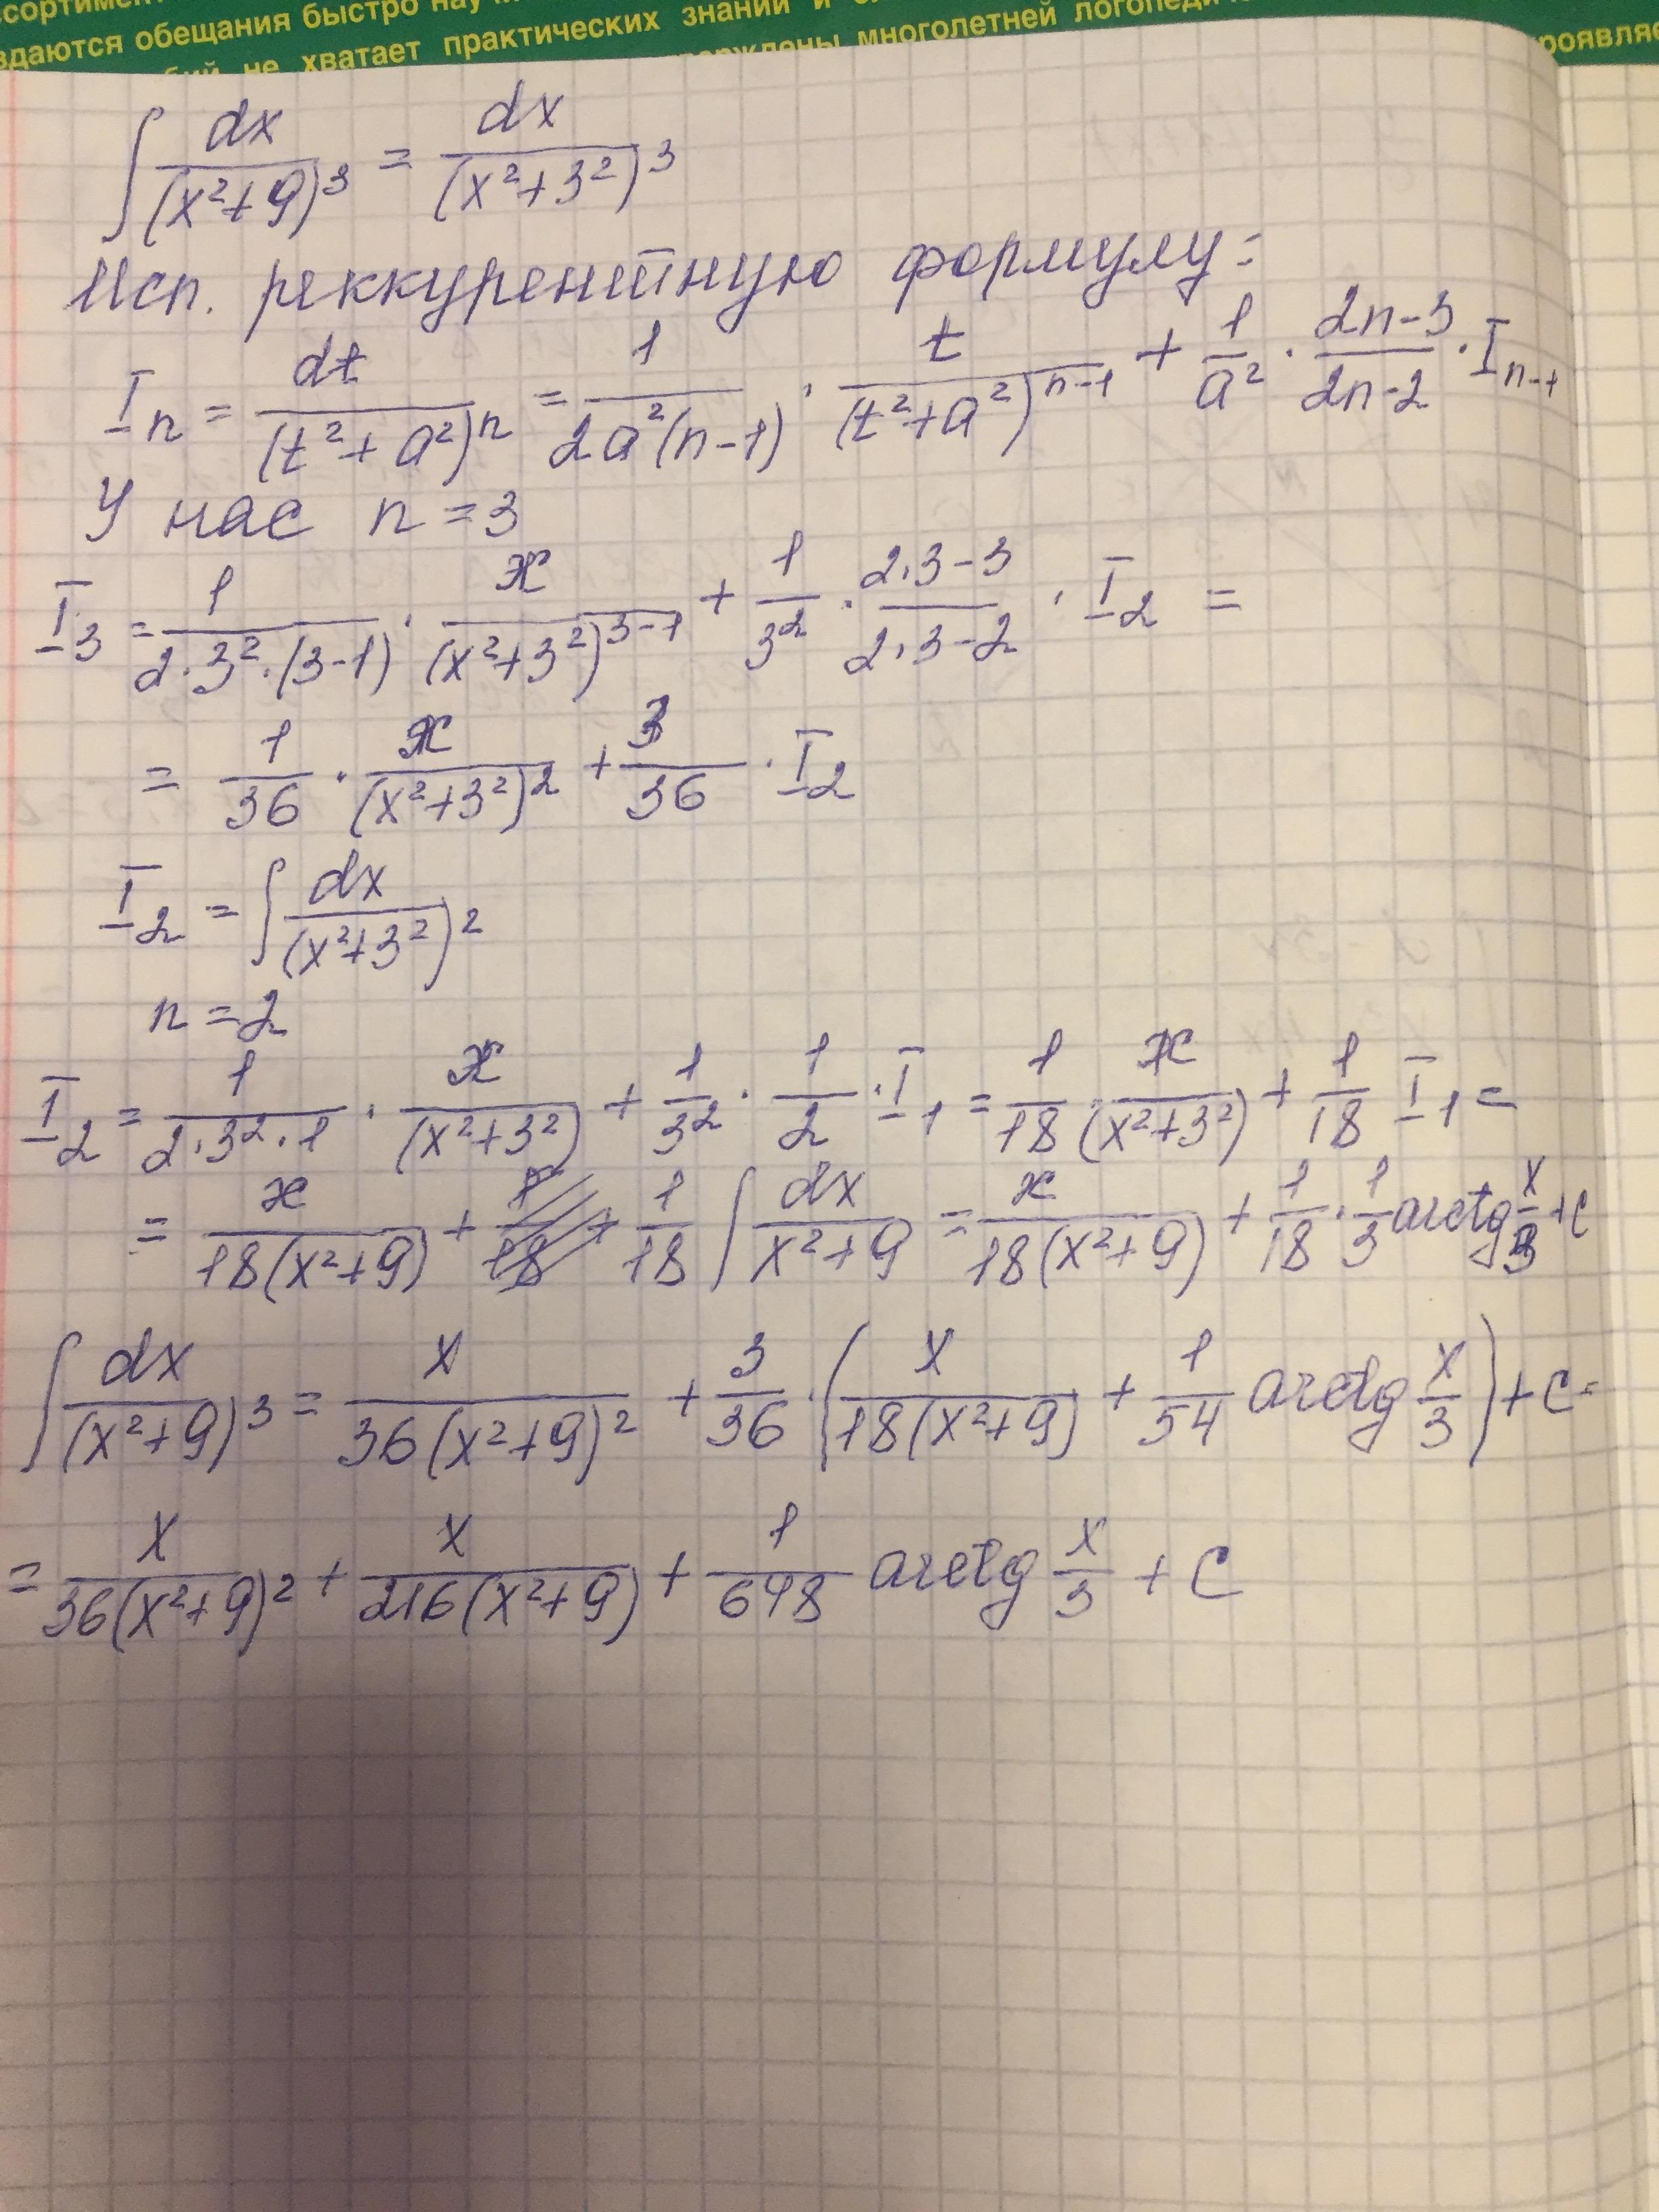 здаются обещания быстро
не хватает практических знаний и
многолетней
∫ dx/(x²+9)³ = dx/(x²+3²)³
Исп. реккурентную формулу:
I_n = dt/(t²+a²)^n = 1/(2a²(n-1)) · t/(t²+a²)^(n-1) + 1/a² · (2n-3)/(2n-2) · I_(n-1)
У нас n=3
I_3 = 1/(2·3²·(3-1)) · x/(x²+3²)^(3-1) + 1/3² · (2·3-3)/(2·3-2) · I_2 =
= 1/36 · x/(x²+3²)² + 3/36 · I_2
I_2 = ∫ dx/(x²+3²)²
n=2
I_2 = 1/(2·3²·1) · x/(x²+3²) + 1/3² · 1/2 · I_1 = 1/18 · x/(x²+3²) + 1/18 I_1 =
= x/(18(x²+9)) + 1/18 ∫ dx/(x²+9) = x/(18(x²+9)) + 1/18 · 1/3 arctg x/3 + C
∫ dx/(x²+9)³ = x/(36(x²+9)²) + 3/36 · (x/(18(x²+9)) + 1/54 arctg x/3) + C =
= x/(36(x²+9)²) + x/(216(x²+9)) + 1/648 arctg x/3 + C